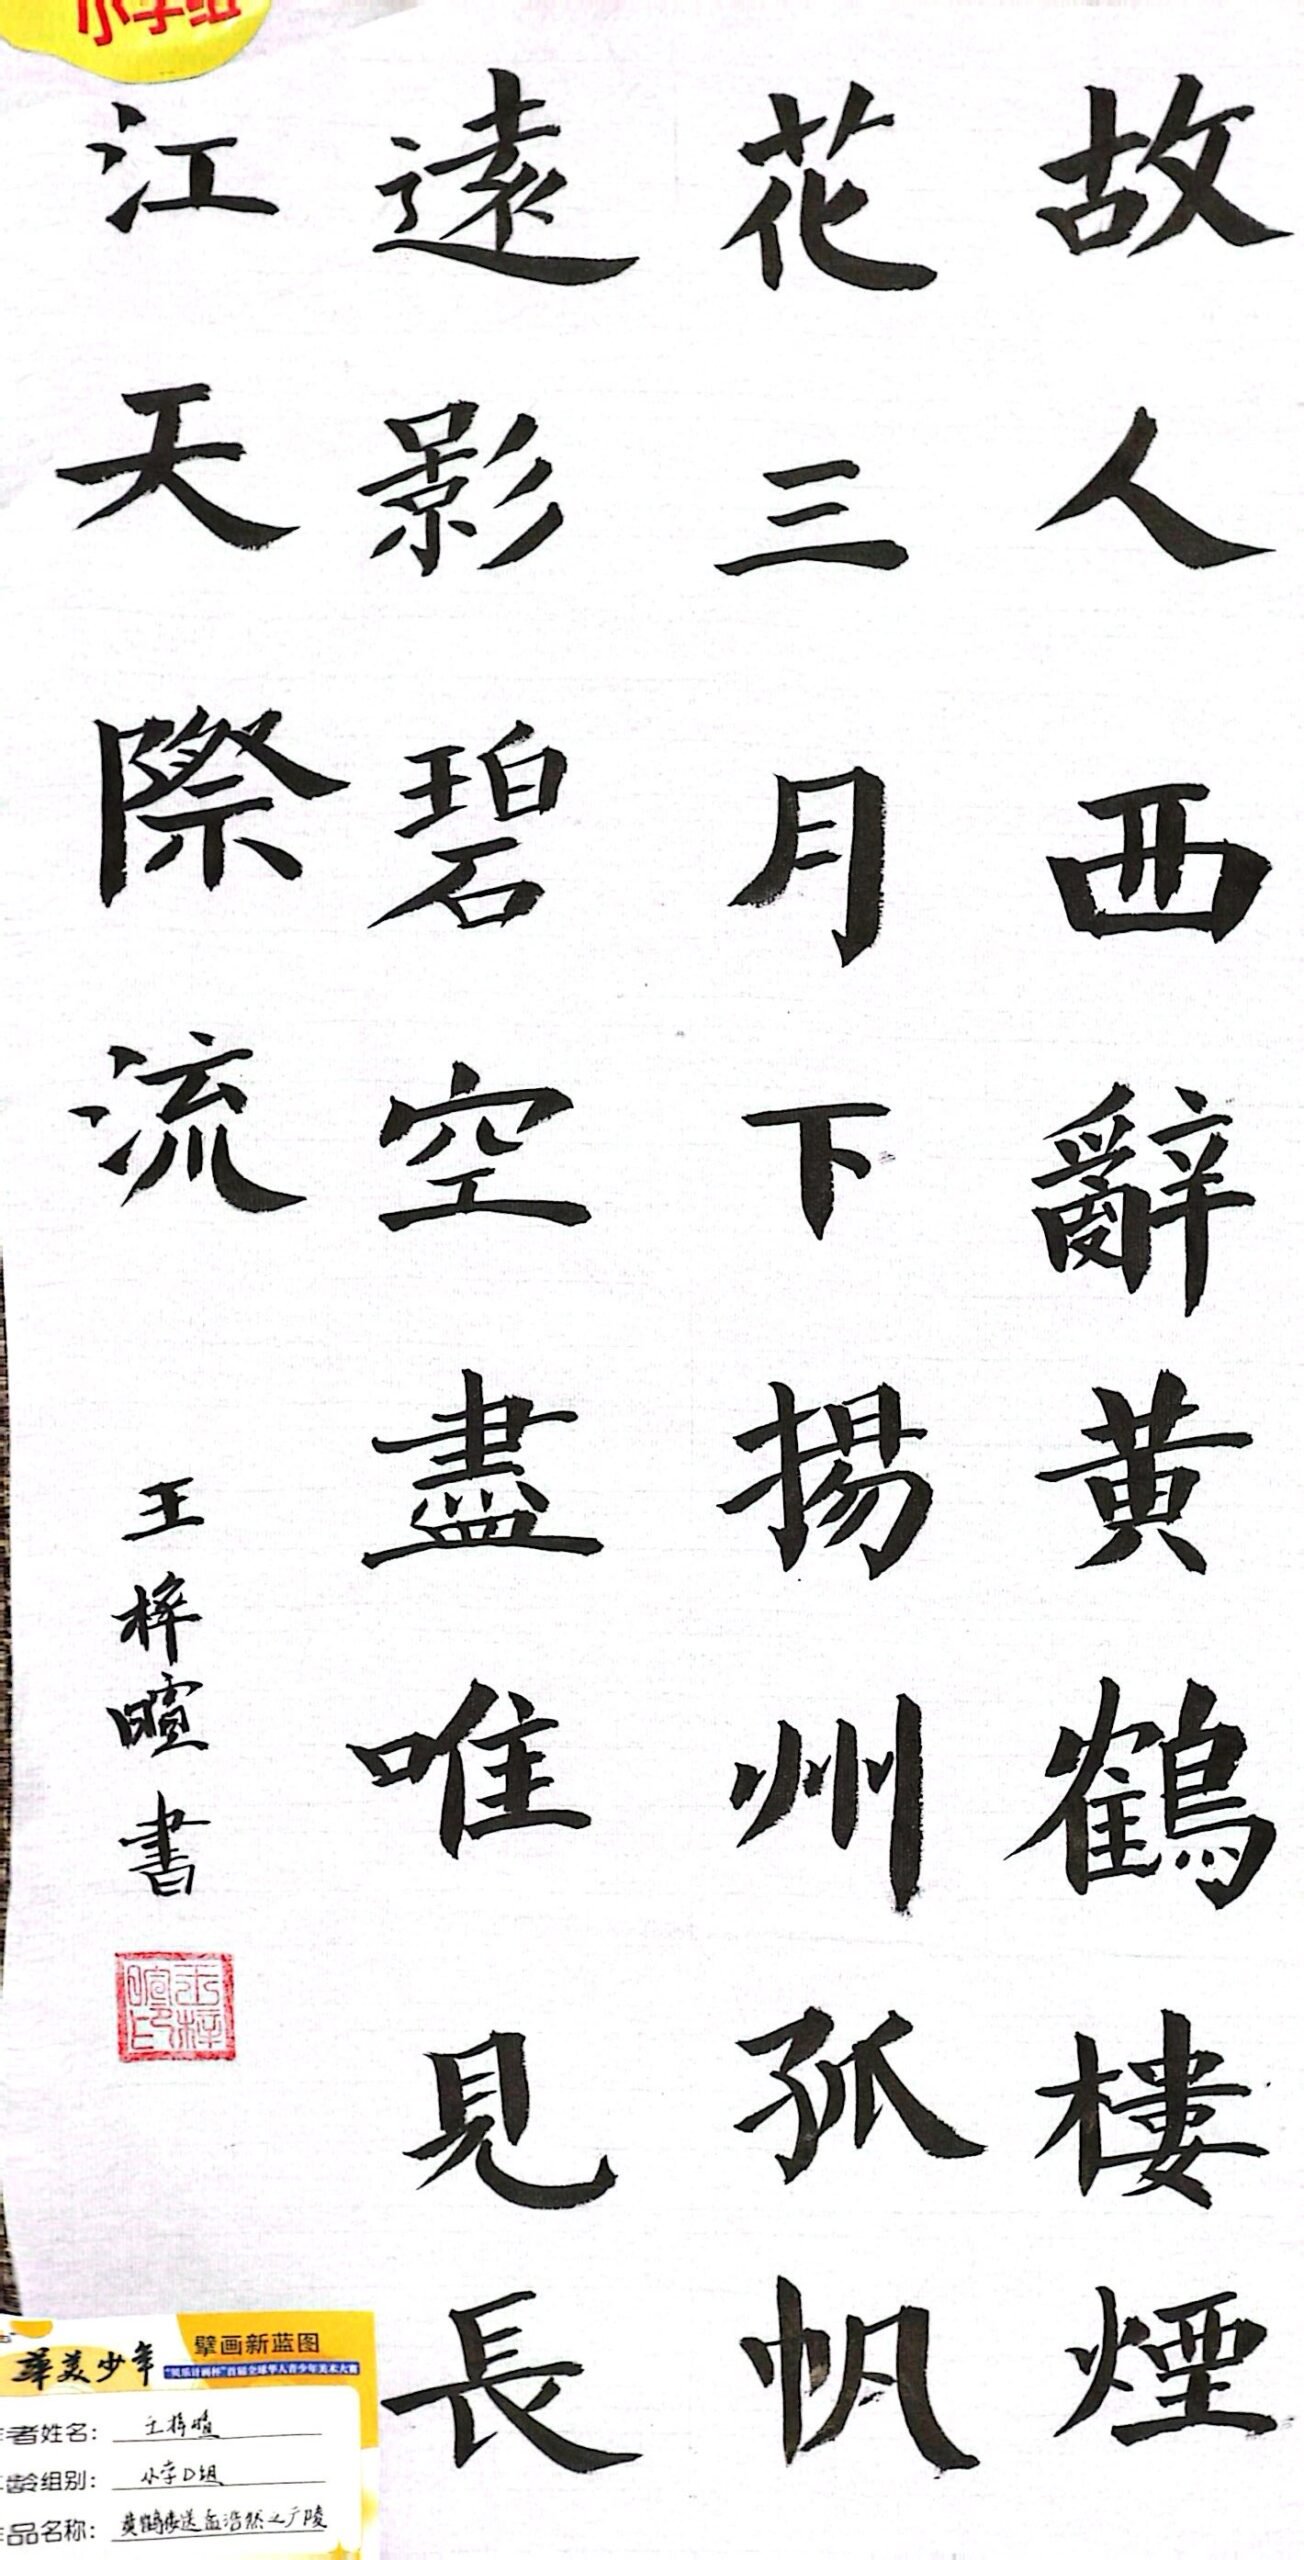 小学组
故人西辭黄鶴樓煙
花三月下揚州孤帆
遠影碧空盡唯見長
江天際流
王梓暄書
王梓暄印
華美少年
擘画新蓝图
者姓名：王梓暄
龄组别：小学D组
品名称：黄鹤楼送孟浩然之广陵